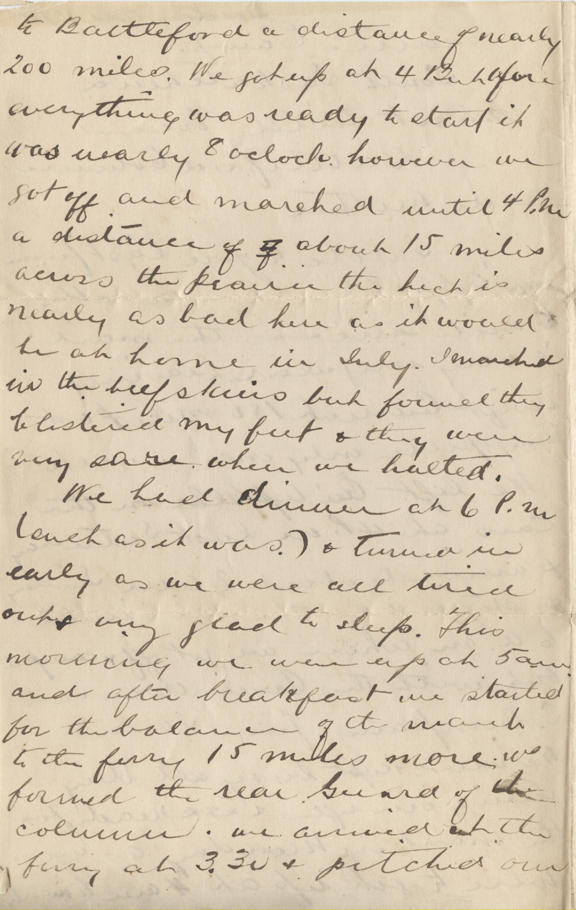 to Battleford a distance of nearly
200 miles. We got up at 4 But before
everything was ready to start it
was nearly 8 oclock. however we
got off and marched until 4 P.m
a distance of about 15 miles
across the prairie the heat is
nearly as bad here as it would
be at home in July. I marched
in the beefskins but found they
blistered my feet & they were
very sore when we halted.
We had dinner at 6 P.m
(such as it was.) & turned in
early as we were all tired
out & very glad to sleep. This
morning we were up at 5 am
and after breakfast we started
for the balance of the march
to the ferry 15 miles more. we
formed the rear Guard of the
column. we arrived at the
ferry at 3.30 & pitched our